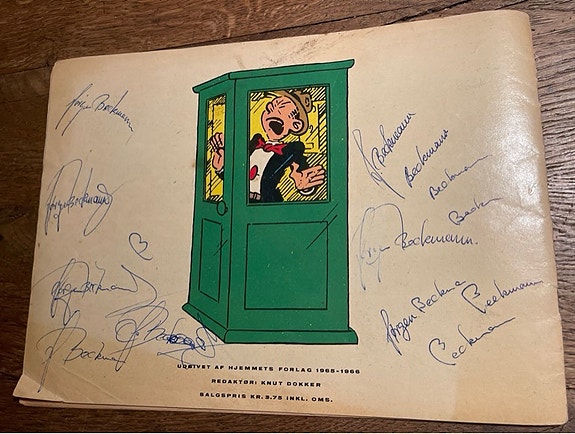 Jørgen Beckmann
Jørgen Beckmann
Jørgen Beckmann
J. Beckmann
J. Beckmann
Beckmann
Beckmann
Jørgen Beckmann.
Jørgen Beckma
Beckmann
Beckmann
UDGIVET AF HJEMMETS FORLAG 1965-1966
REDAKTØR: KNUT DOKKER
SALGSPRIS KR. 3.75 INKL. OMS.